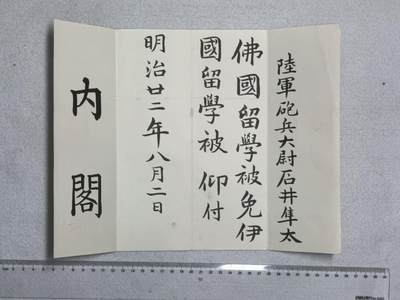 陸軍砲兵大尉石井隼太
佛國留學被免伊
國留學被仰付
明治廿二年八月二日
内閣